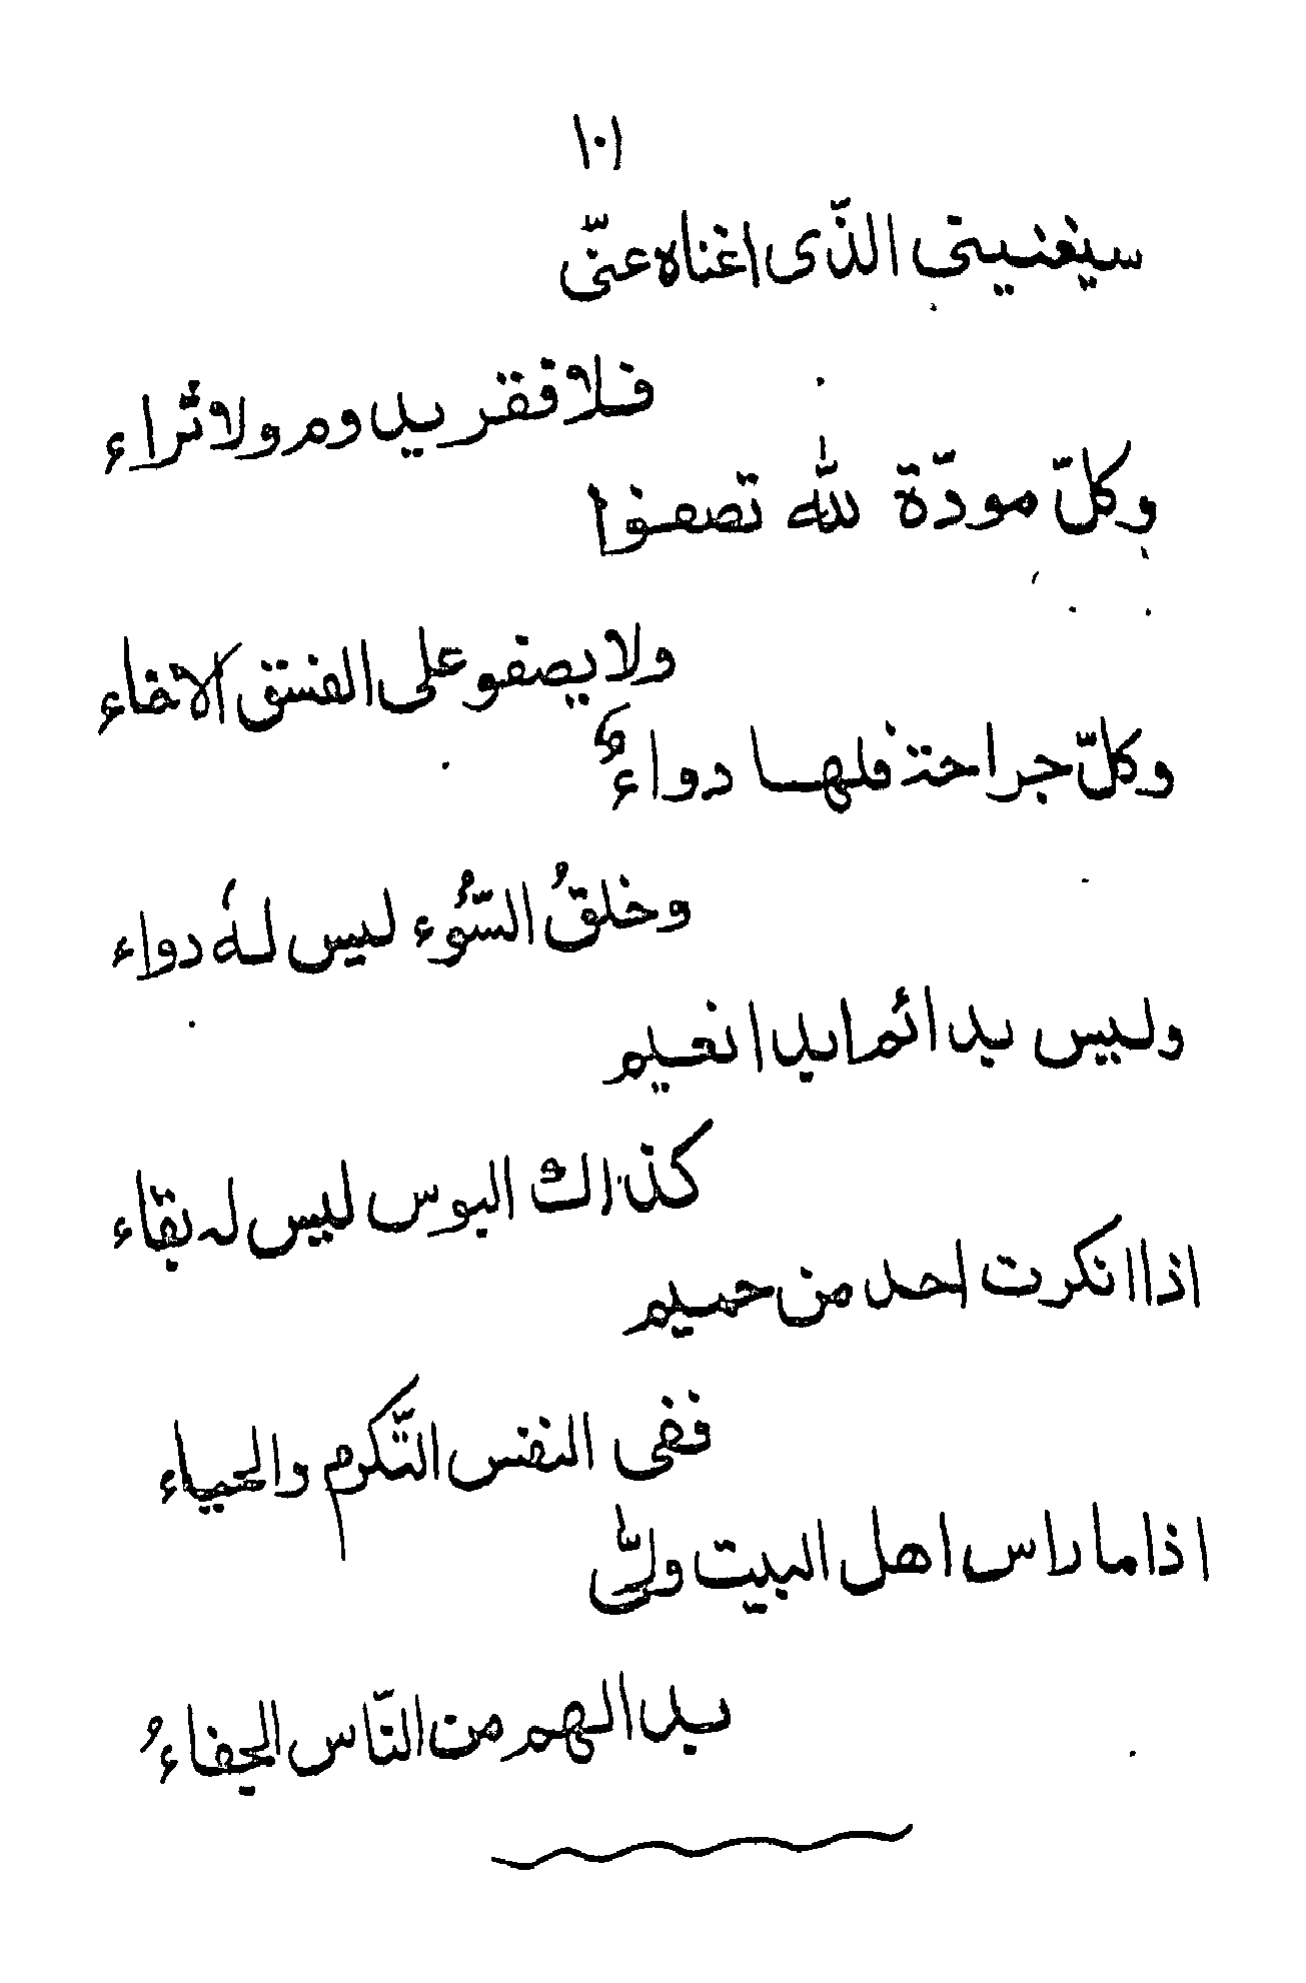 ١٠١
سيغنيني الذّى اغناه عنّى
فلا فقر يدوم ولا ثراء
وكلّ مودّة لله تصفوا
ولا يصفو على الفسق الاخاء
وكلّ جراحة فلها دواءٌ
وخلقُ السُّوء ليس لهٗ دواء
وليس بدائم ابدا نعيم
كذاك البوس ليس له بقاء
اذا انكرت احد من حميم
ففى النفس التّكرم والحياء
اذا ما راس اهل البيت ولّى
بدا لهم من النّاس الجفاءُ